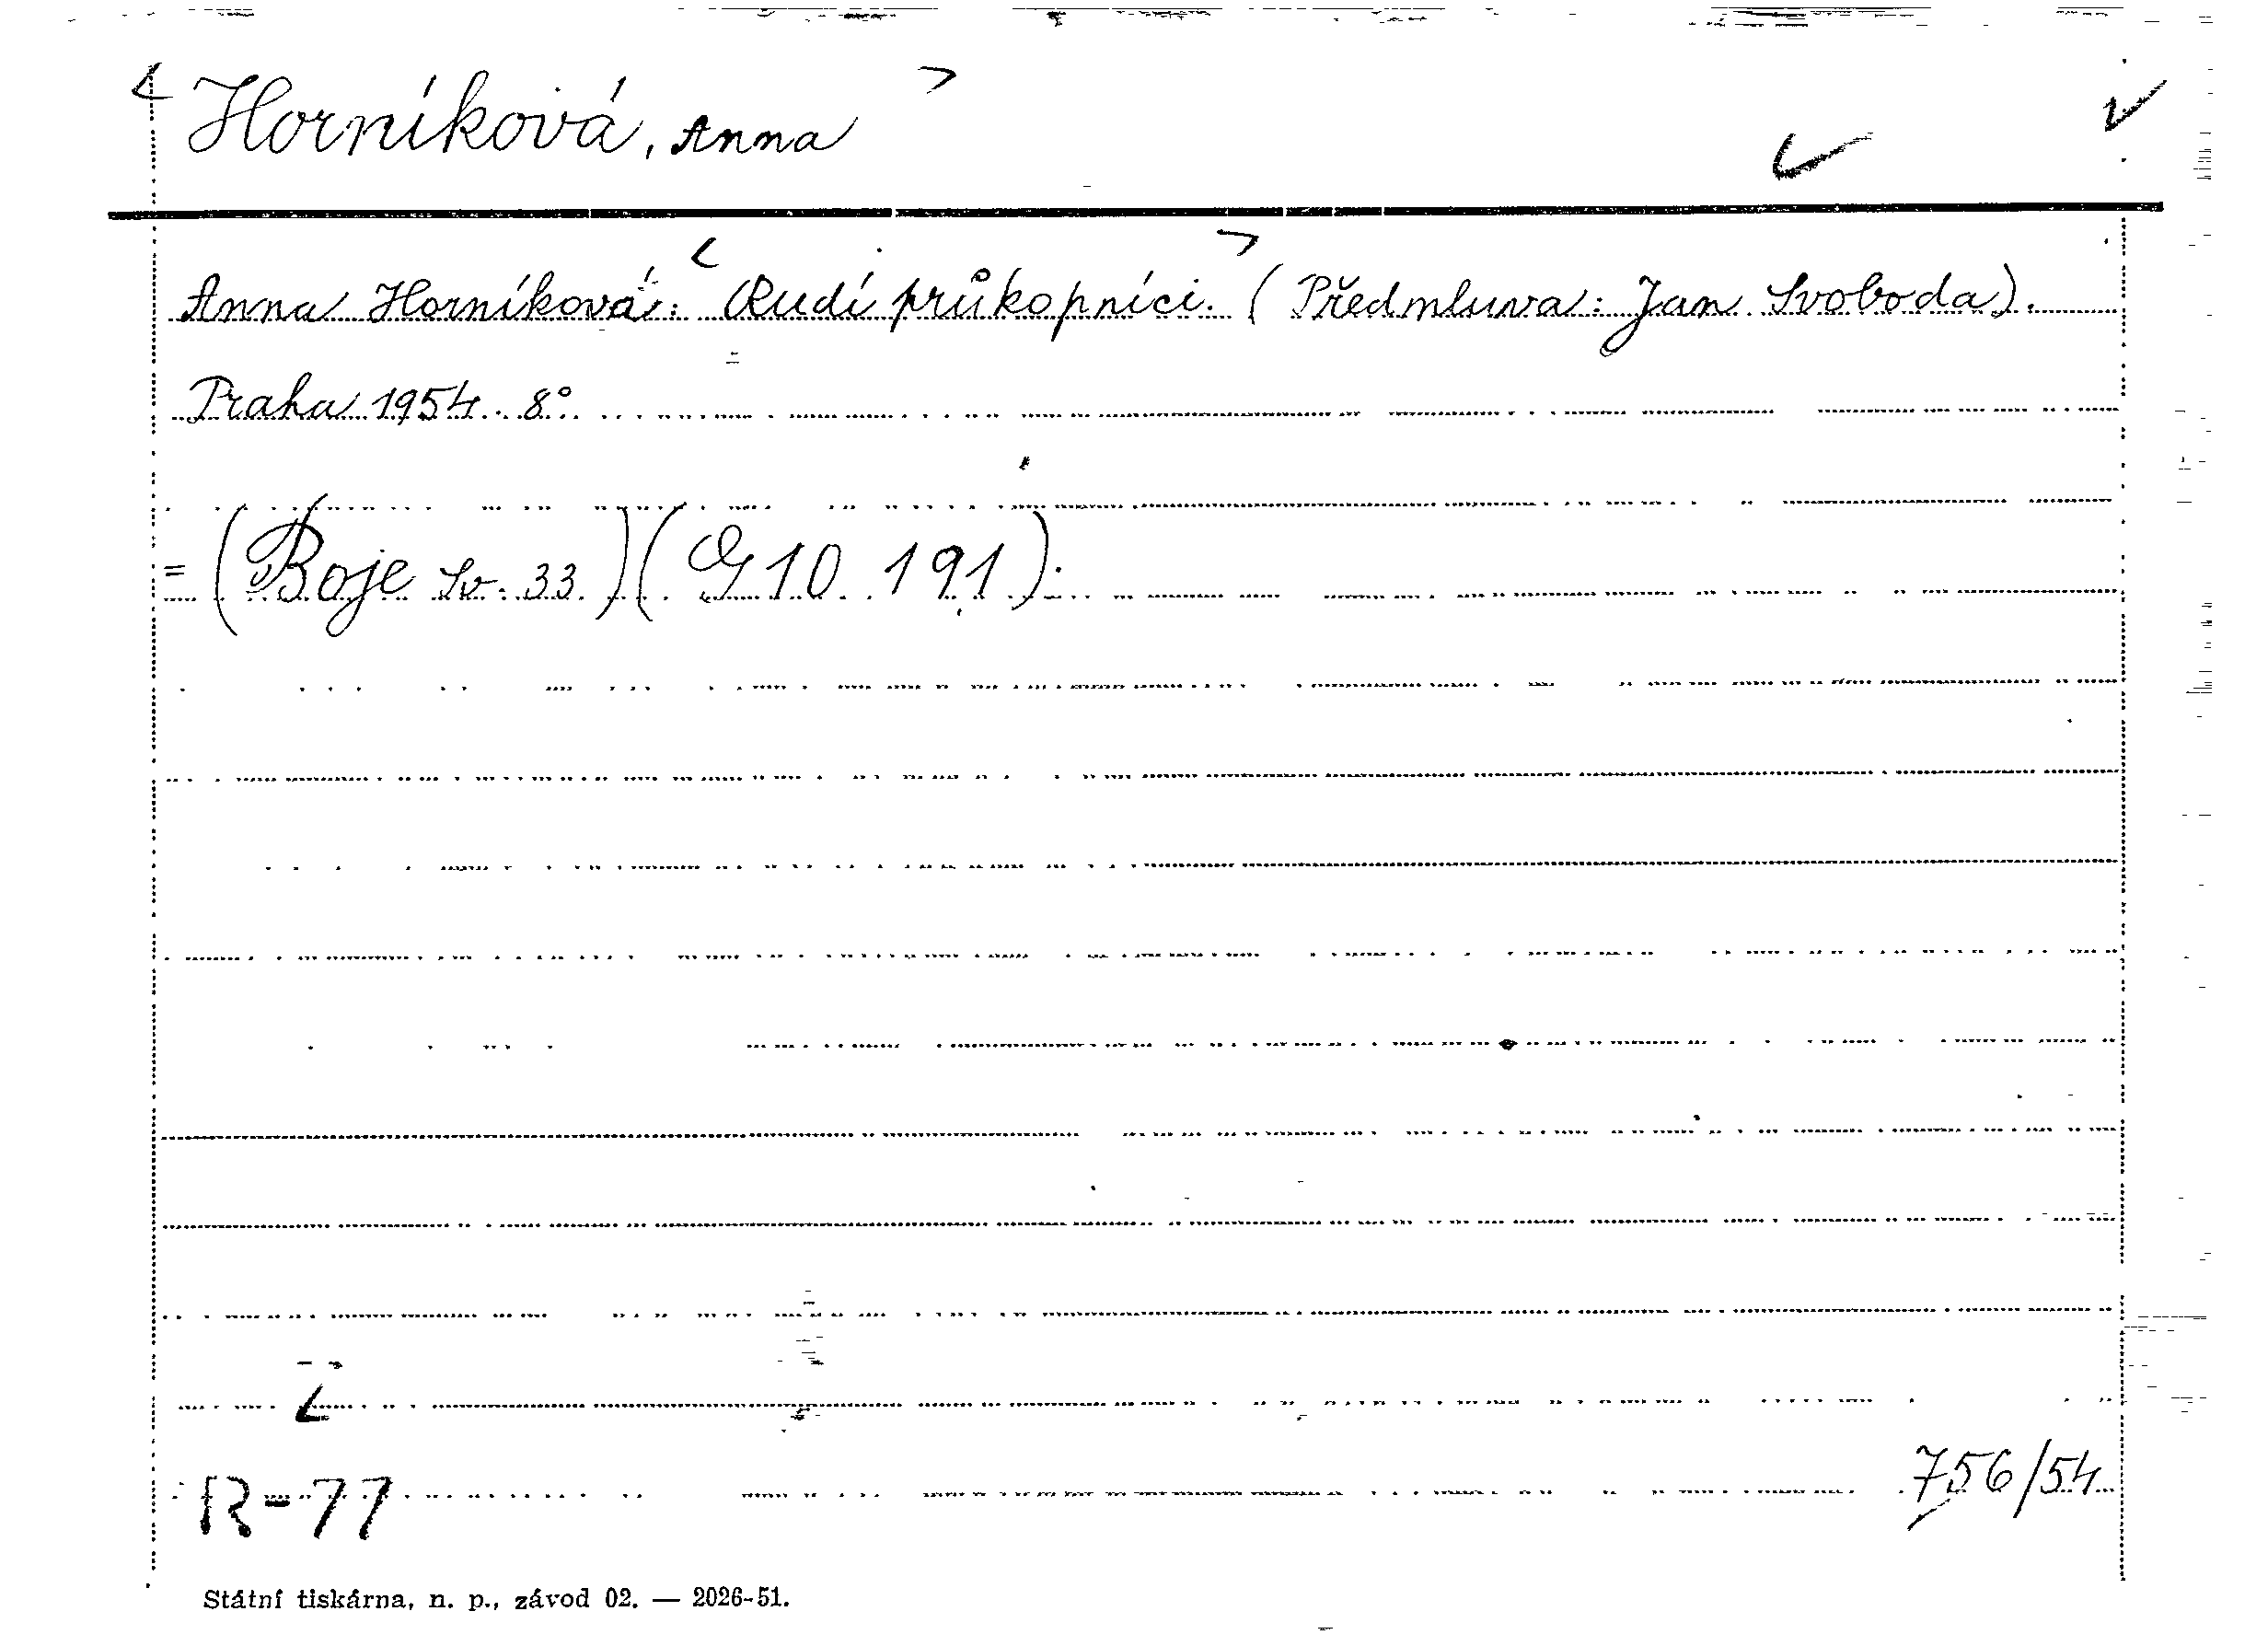 < Horníková, Anna >
Anna Horníková: <Rudí průkopníci.> (Předmluva: Jan Svoboda).
Praha 1954. 8°.
= (Boje sv. 33.) (G 10.191).
R-77
756/54
Státní tiskárna, n. p., závod 02. — 2026-51.